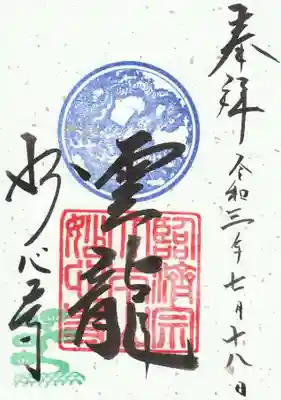 奉拝
令和三年七月十八日
雲龍
妙心寺